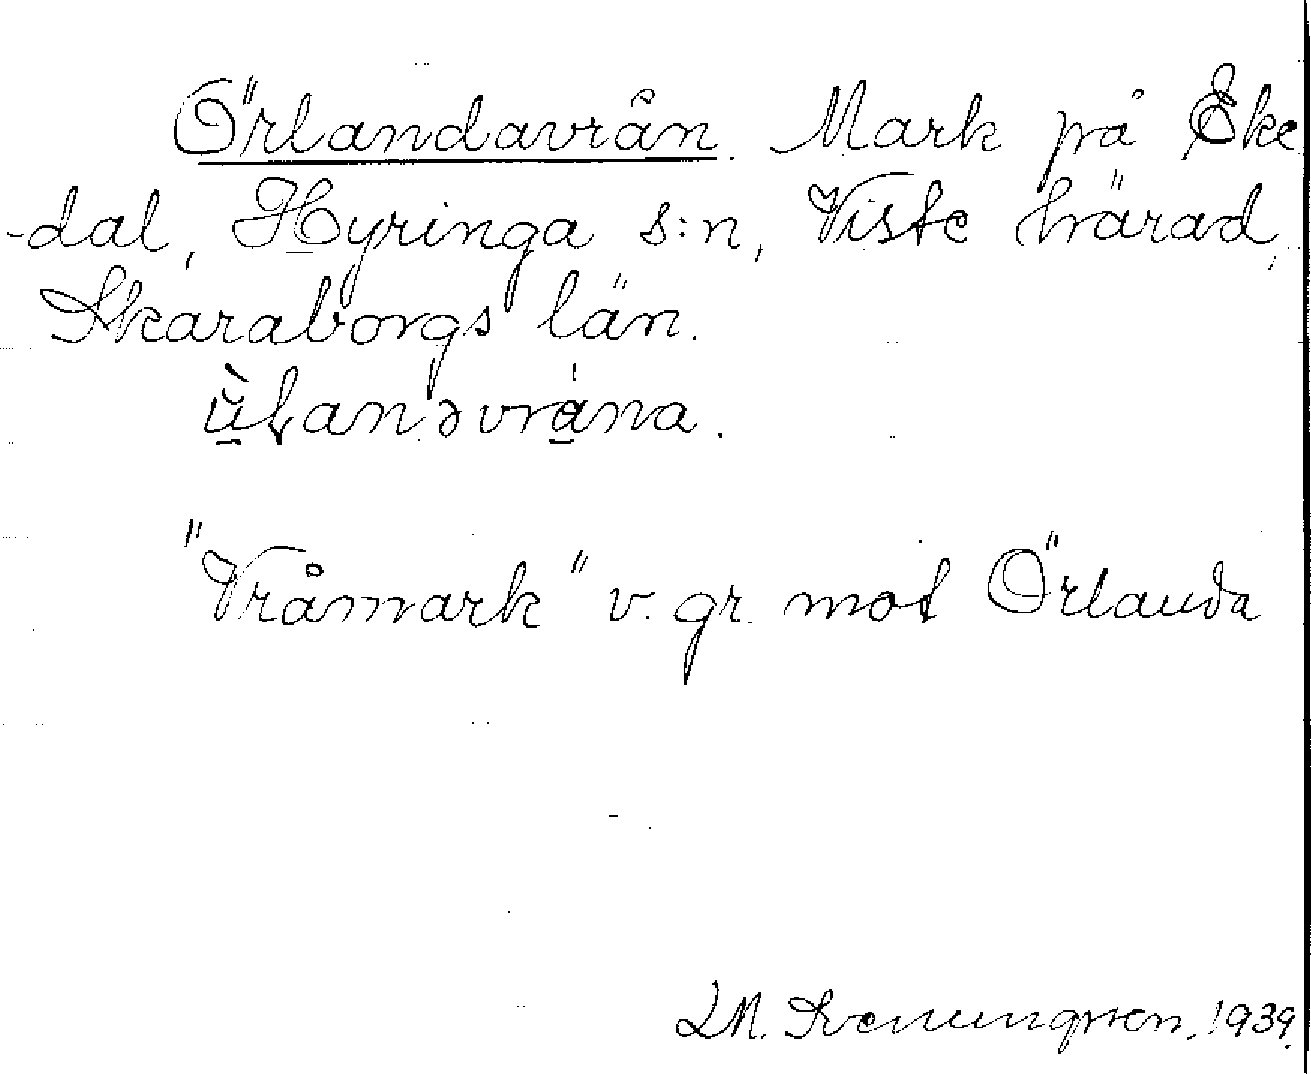 Örlandavrån. Mark på Eke
-dal, Hyringa s:n, Viste härad,
Skaraborgs län.
"Vråmark" v. gr. mot Örlanda
L M. Svenungsson, 1939.